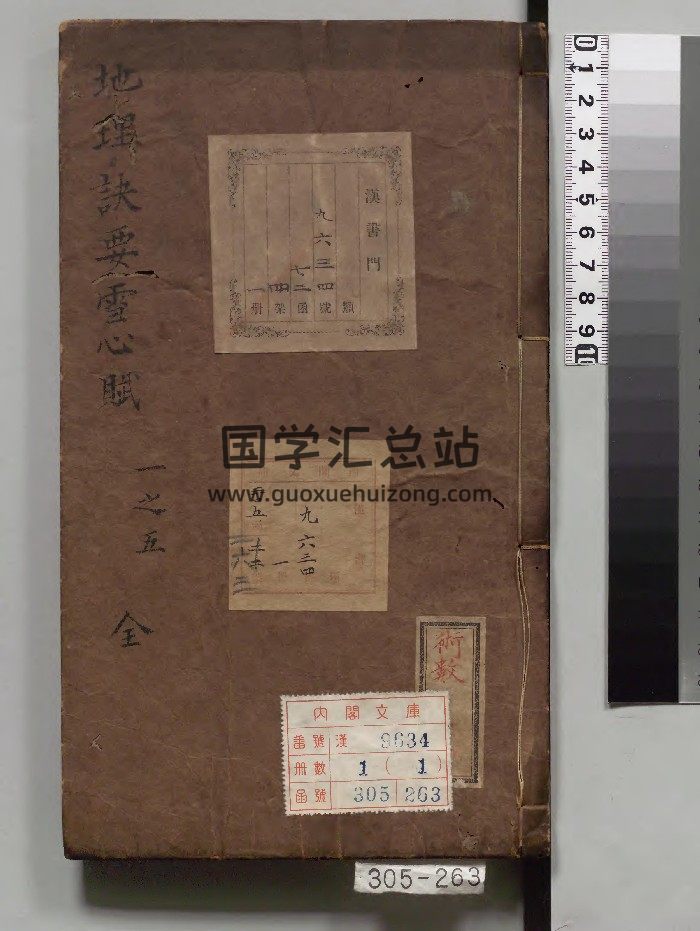 地理訣要雪心賦
一之五
全
漢書門
九六三四
七二
四
一
類
號
函
架
冊
国学汇总站
www.guoxuehuizong.com
漢書
九六三四
一
二六三
術數
内閣文庫
番號 漢 9634
冊數 1 ( 1 )
函號 305 263
305-263
0 1 2 3 4 5 6 7 8 9 10